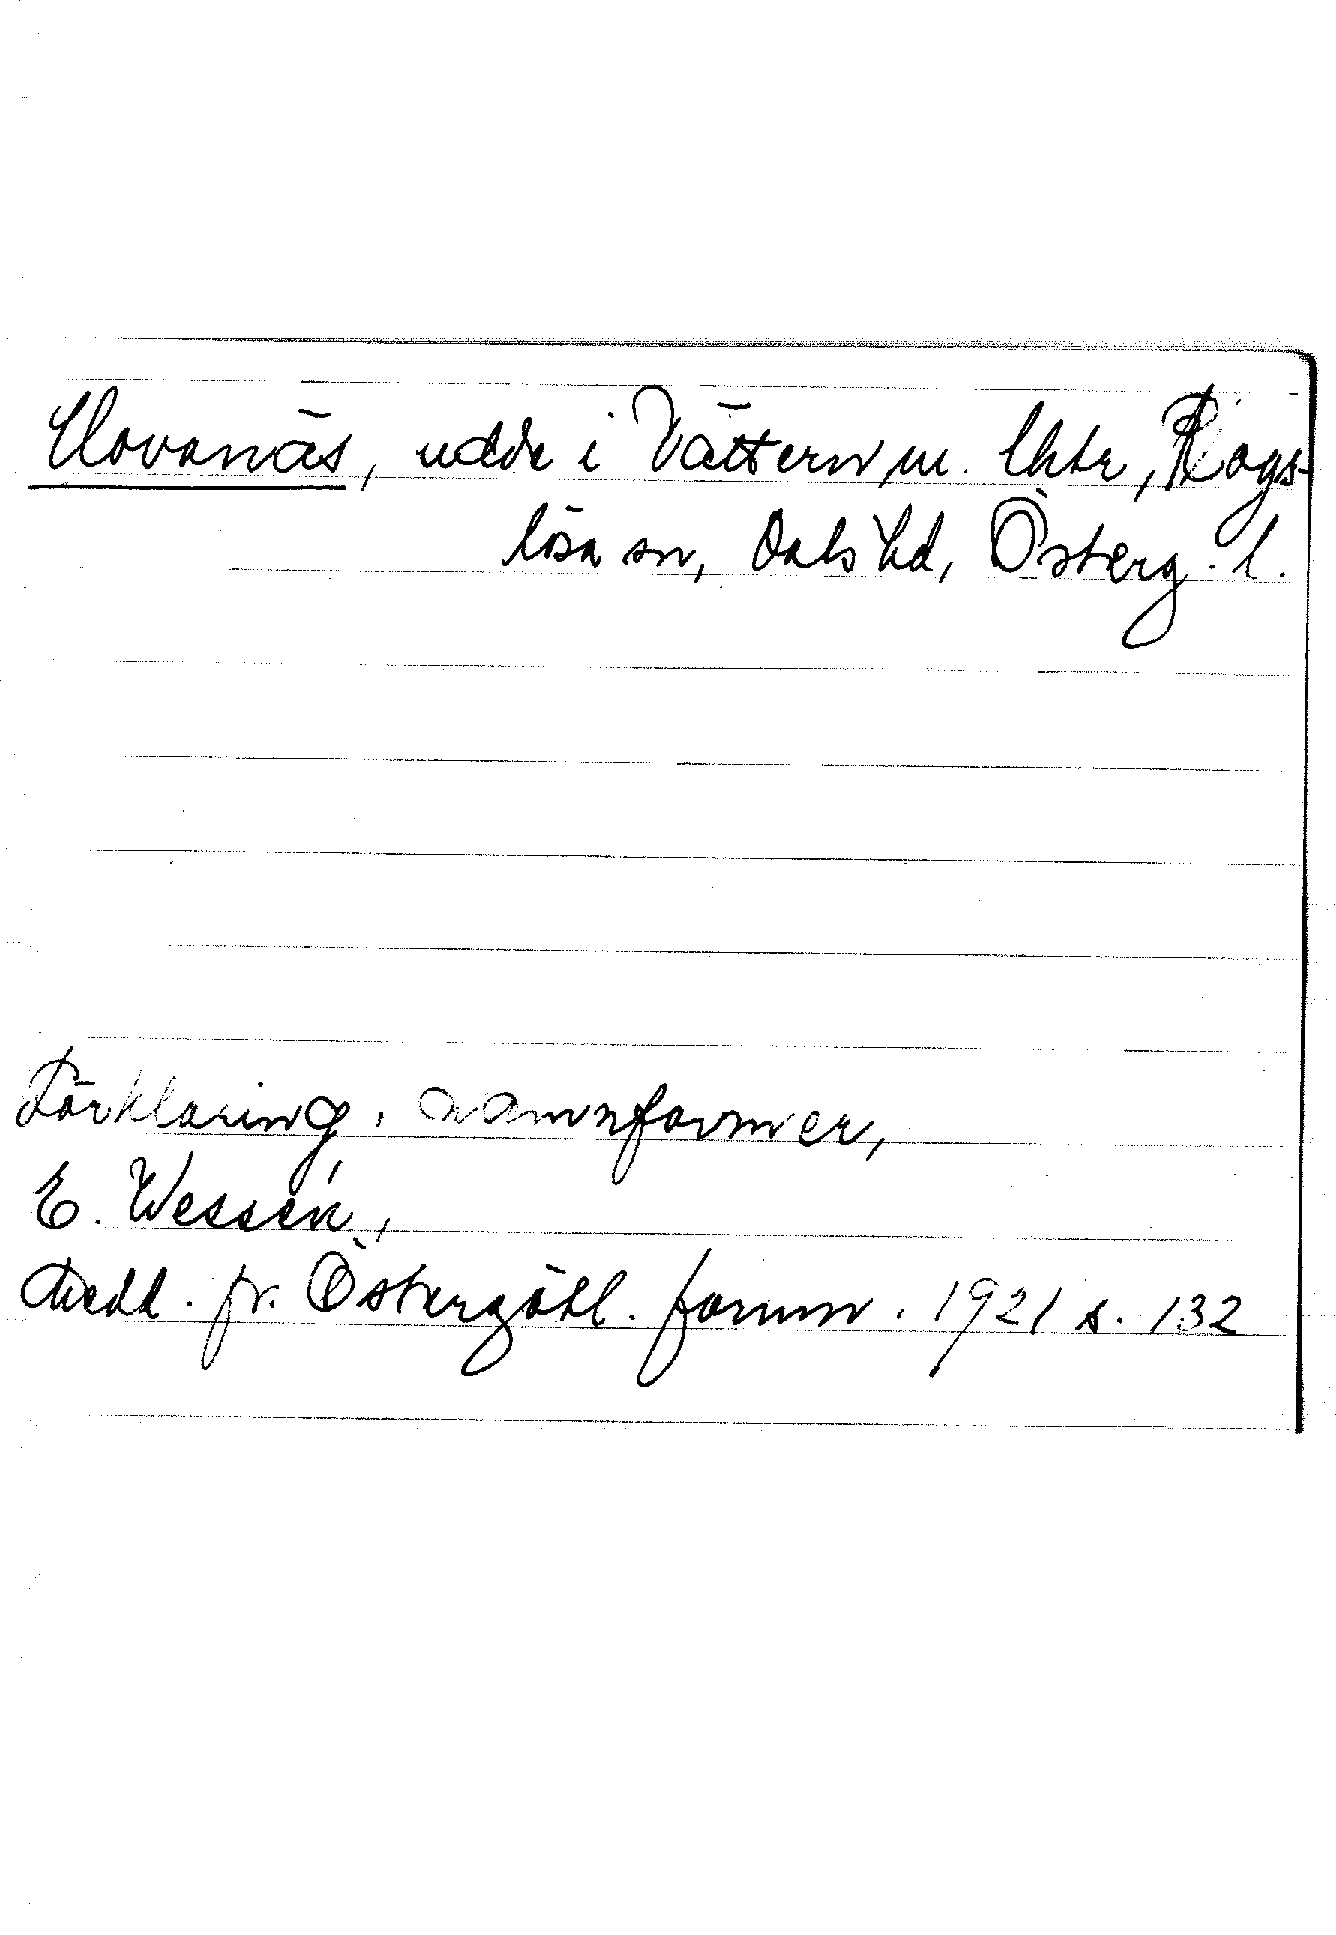 Hovanäs, udde i Vättern, m. lhtr, Rogs-
lösa sn, Dals hd, Österg. l.
Förklaring, namnformer,
E. Wessén,
Medd. fr. Östergötl. fornm. 1921 s. 132